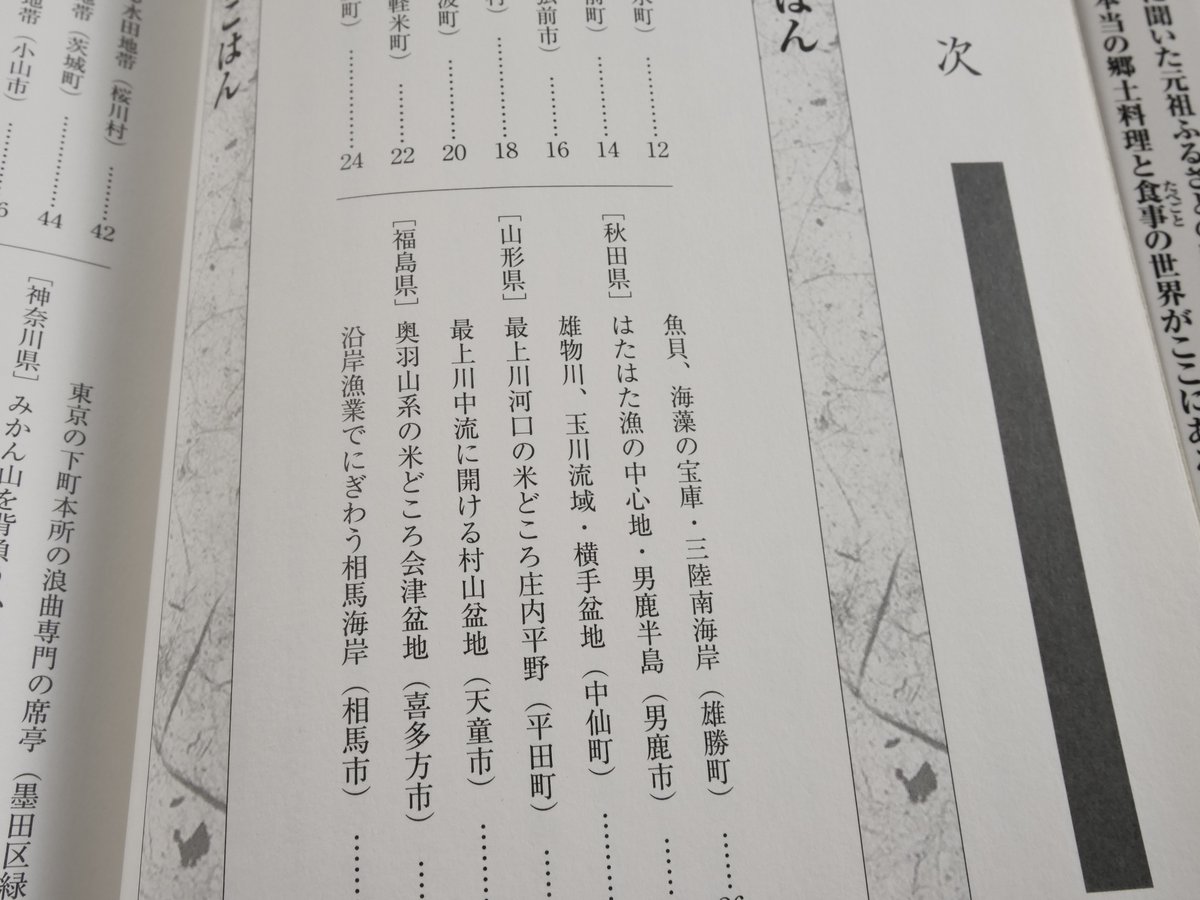 に聞いた元祖ふるさとの
本当の郷土料理と食事の世界がここにあ
たべごと
次
はん
町）……12
前町）……14
弘前市）……16
村）……18
波町）……20
軽米町）……22
町）……24
魚貝、海藻の宝庫・三陸南海岸（雄勝町）……
［秋田県］はたはた漁の中心地・男鹿半島（男鹿市）……
雄物川、玉川流域・横手盆地（中仙町）……
［山形県］最上川河口の米どころ庄内平野（平田町）……
最上川中流に開ける村山盆地（天童市）……
［福島県］奥羽山系の米どころ会津盆地（喜多方市）……
沿岸漁業でにぎわう相馬海岸（相馬市）……
ごはん
水田地帯（桜川村）……42
地帯（茨城町）……44
地帯（小山市）……6
東京の下町本所の浪曲専門の席亭（墨田区緑
［神奈川県］みかん山を背負